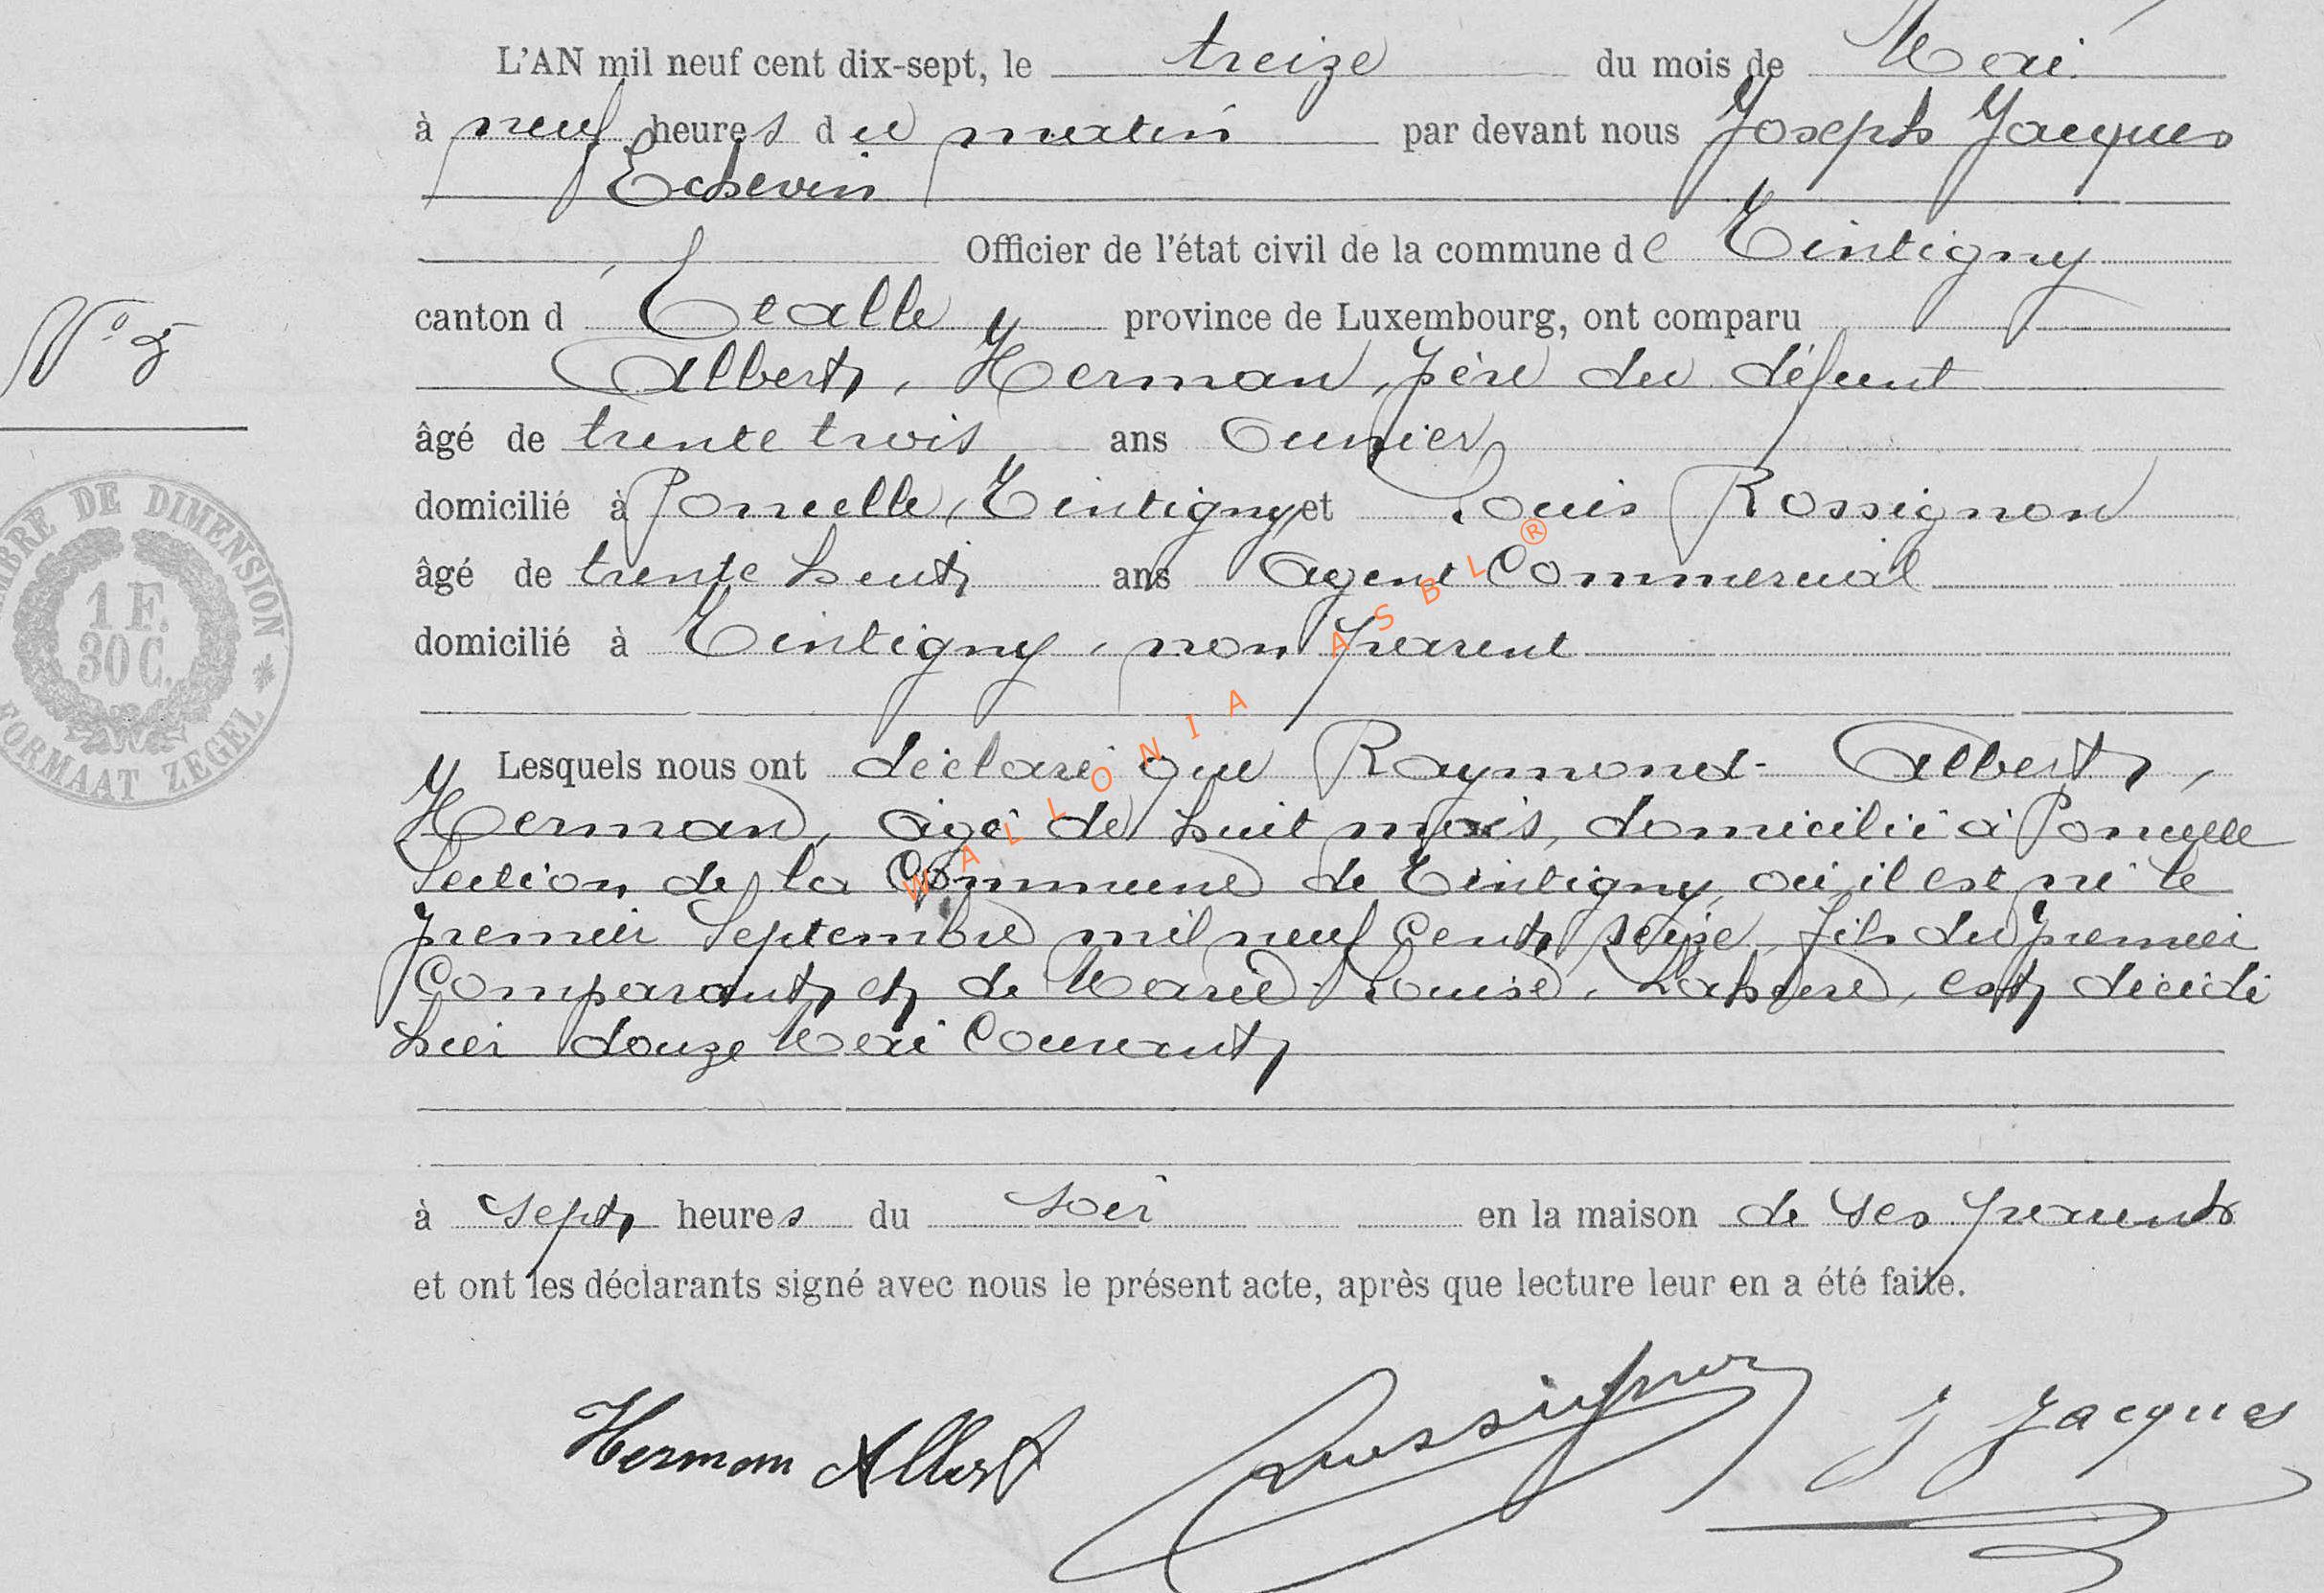 L'AN mil neuf cent dix-sept, le treize du mois de Mai
à neuf heures du matin par devant nous Joseph Jacques
Echevin
Officier de l'état civil de la commune de Tintigny
canton d Etalle province de Luxembourg, ont comparu
N° 5
Albert, Herman, père du défunt
âgé de trente trois ans Ouvrier
domicilié à Poncelle, Tintigny et Louis Rossignon
âgé de trente huit ans Agent Commercial
domicilié à Tintigny, non parent
TIMBRE DE DIMENSION * FORMAAT ZEGEL
1 F.
30 C.
Lesquels nous ont déclaré que Raymond-Albert,
Herman, agé de huit mois, domicilié à Poncelle
Section de la Commune de Tintigny, où il est né le
premier Septembre mil neuf Cent seize, fils du premier
Comparant et de Marie-Louise, Lahure, est décédé
hier douze Mai Courant
à sept heures du soir en la maison de ses parents
et ont les déclarants signé avec nous le présent acte, après que lecture leur en a été faite.
Herman Albert Rossignon J Jacques
WALLONIA ASBL ®